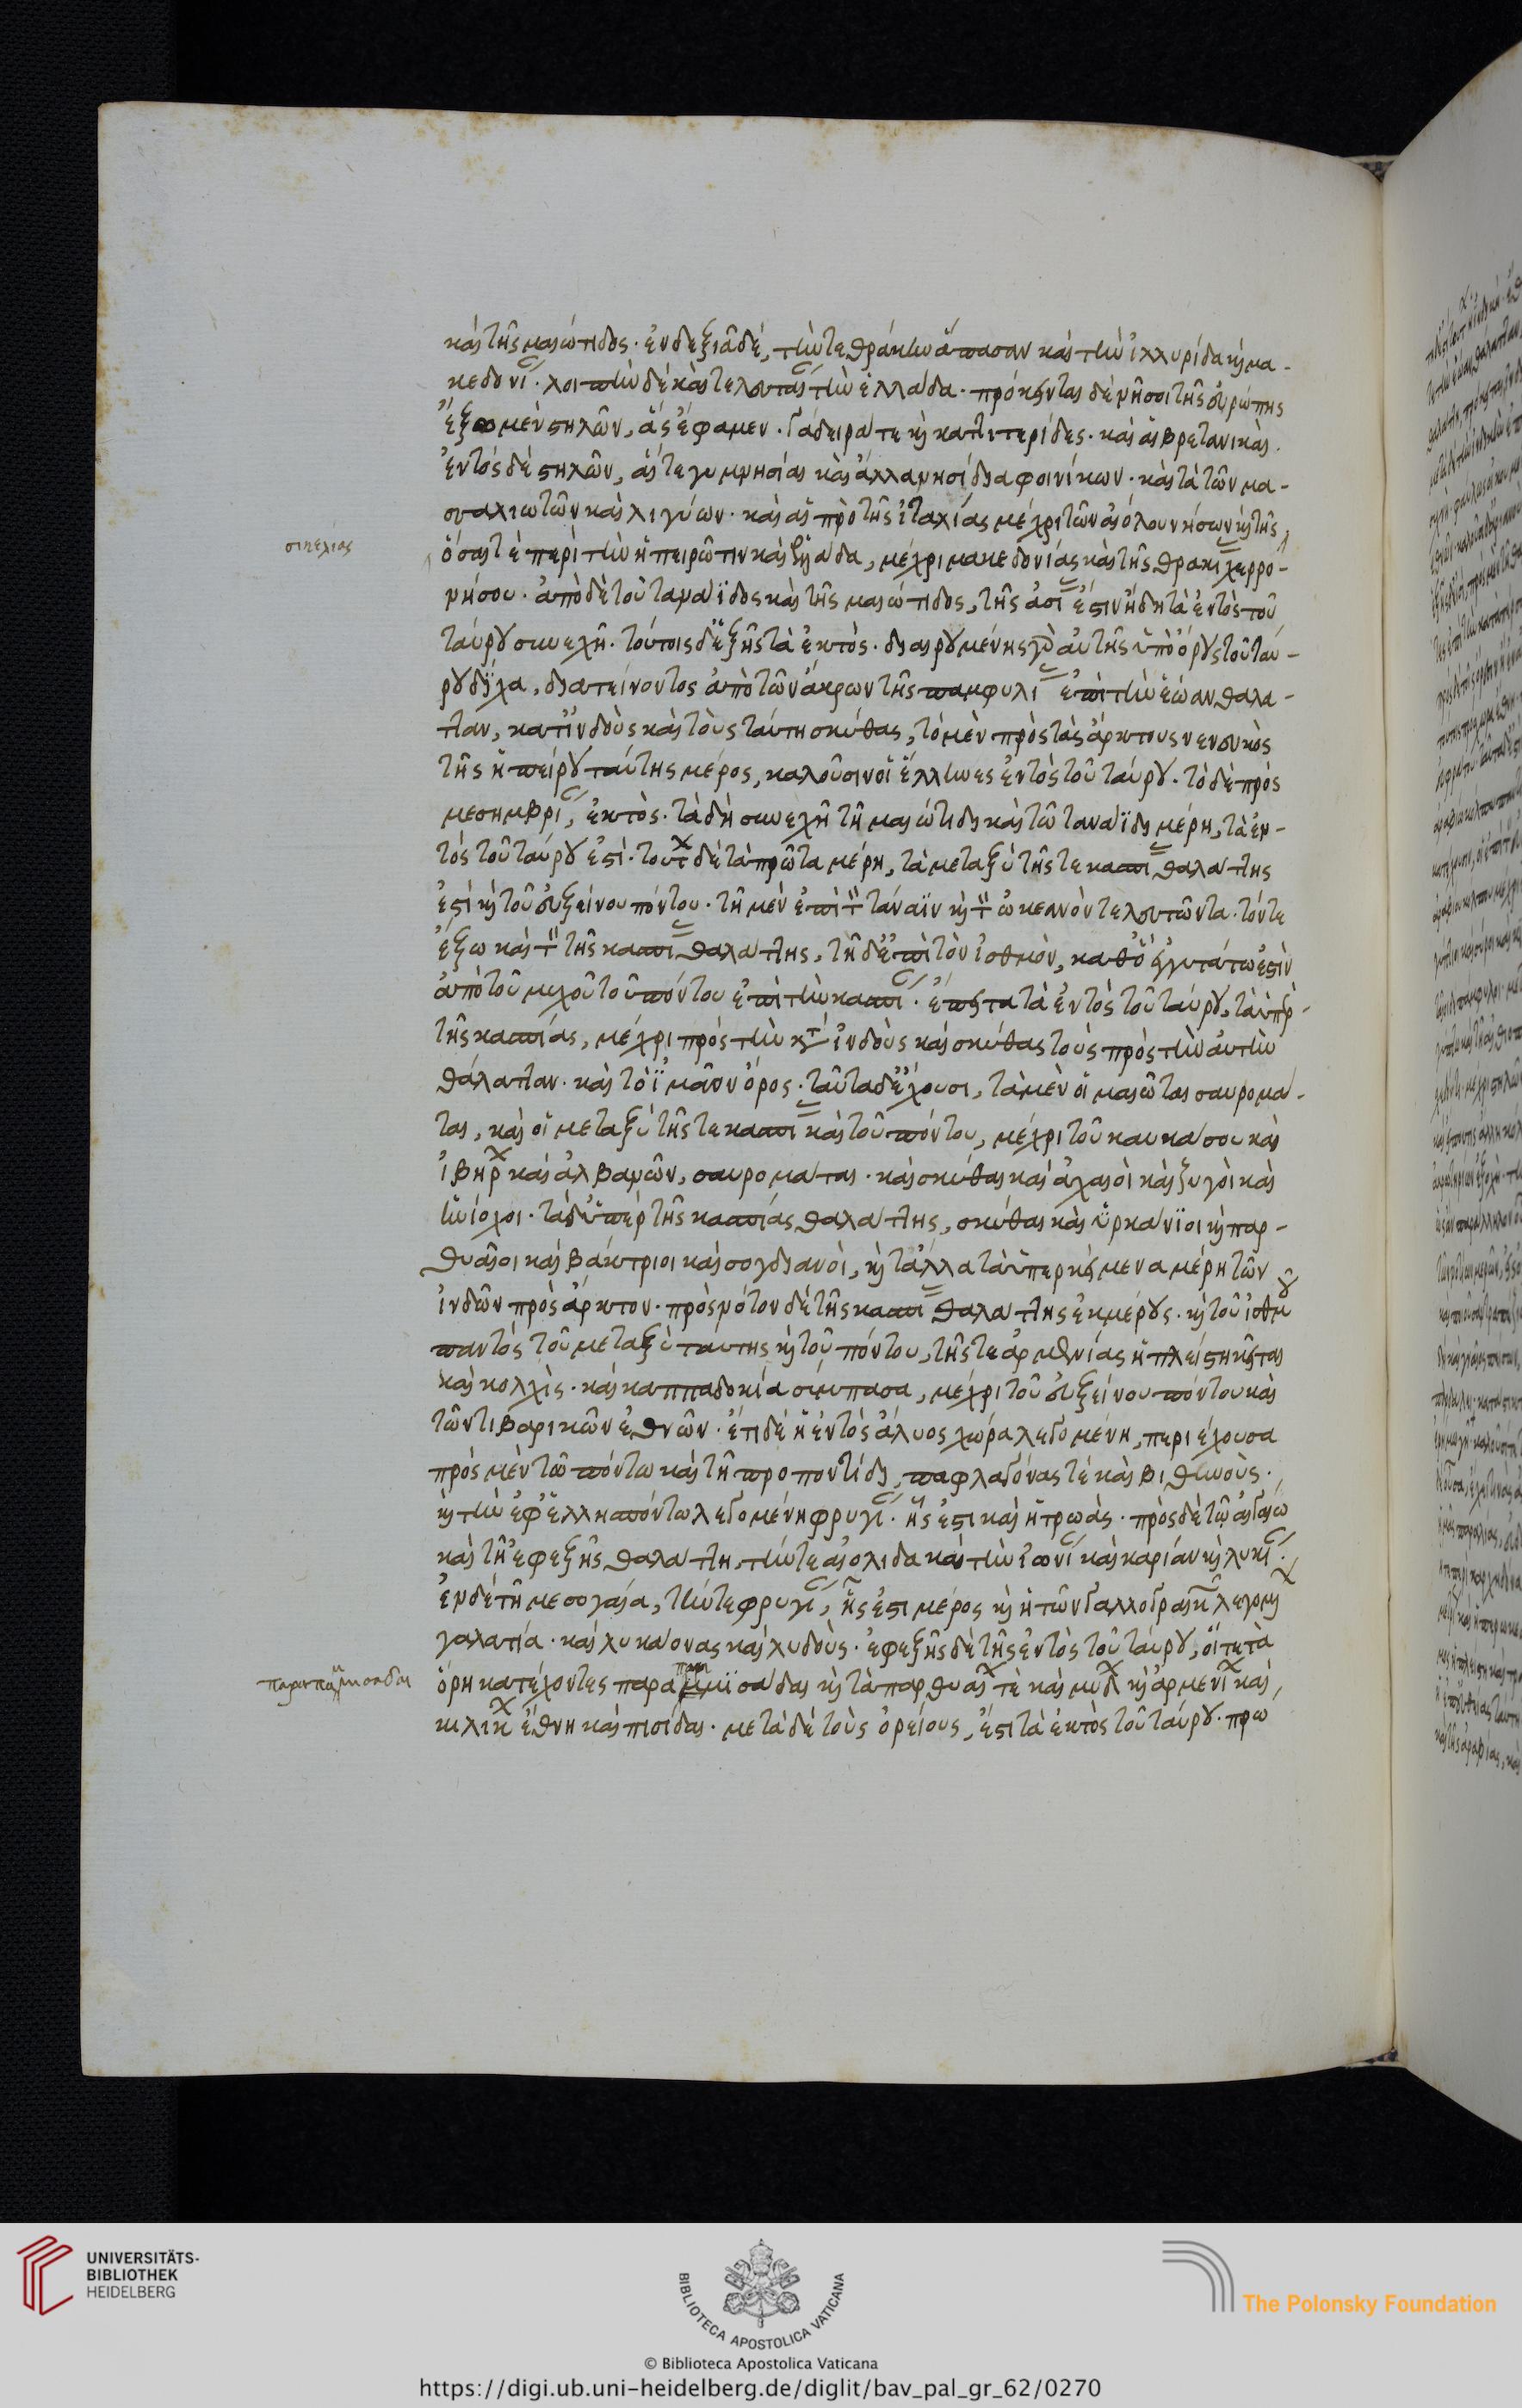 καὶ τῆς μαιώτιδος· ἐν δεξιᾷ δὲ, τήν τε θράκην ἅπασαν καὶ τὴν ἰλλυρίδα καὶ μα-
κεδονί· λοιπὴν δὲ καὶ τελευταί τὴν ἑλλάδα. πρόκεινται δὲ νῆσοι τῆς εὐρώπης
ἔξω μὲν στηλῶν, ἃς ἔφαμεν. Γάδειρά τε καὶ καττιτερίδες. καὶ αἱ βρετανικαὶ.
ἐντὸς δὲ στηλῶν, αἵ τε γυμνησίαι καὶ ἄλλα νησίδια φοινίκων. καὶ τὰ τῶν μα-
σσαλιωτῶν καὶ λιγύων. καὶ αἱ πρὸ τῆς ἰταλίας μέχρι τῶν αἰόλου νήσων καὶ τῆς
σικελίας
ὅσαι τὲ περὶ τὴν ἠπειρῶτιν καὶ ἑλλάδα, μέχρι μακεδονίας καὶ τῆς θρακί χερρο-
νήσου. ἀπὸ δὲ τοῦ ταναΐδος καὶ τῆς μαιώτιδος, τῆς ἀσί ἐστὶν ἤδη τὰ ἐντὸς τοῦ
ταύρου συνεχῆ. τούτοις δ' ἑξῆς τὰ ἐκτὸς. διαιρουμένης γὰρ αὐτῆς ὑπὸ ὄρους τοῦ ταύ-
ρου δίχα, διατείνοντος ἀπὸ τῶν ἄκρων τῆς παμφυλί ἐπὶ τὴν ἑώαν θαλα-
τταν, κατ' ἰνδοὺς καὶ τοὺς ταύτη σκύθας, τὸ μὲν πρὸς τὰς ἄρκτους νενευκὸς
τῆς ἠπείρου ταύτης μέρος, καλοῦσιν οἱ ἕλληνες ἐντὸς τοῦ ταύρου. τὸ δὲ πρὸς
μεσημβρί, ἐκτὸς. τὰ δὴ συνεχῆ τῇ μαιώτιδι καὶ τῷ ταναΐδι μέρη, τὰ ἐν-
τὸς τοῦ ταύρου ἐστί. τούτ δὲ τὰ πρῶτα μέρη, τὰ μεταξὺ τῆς τε κασπί θαλάττης
ἐστὶ καὶ τοῦ εὐξείνου πόντου. τῇ μὲν ἐπὶ τ τάναϊν καὶ τ ὠκεανὸν τελευτῶντα. τόν τε
ἔξω καὶ τ τῆς κασπί θαλάττης, τῇ δ' ἐπὶ τὸν ἰσθμὸν, καθ' ὃ ἐγγυτάτω ἐστὶν
ἀπὸ τοῦ μυχοῦ τοῦ πόντου ἐπὶ τὴν κασπί. ἔπειτα τὰ ἐντὸς τοῦ ταύρου, τὰ ὑπὲρ
τῆς κασπίας, μέχρι πρὸς τὴν κτ ἰνδοὺς καὶ σκύθας τοὺς πρὸς τὴν αὐτὴν
θάλατταν. καὶ τὸ ἰμάϊον ὄρος. ταῦτα δ' ἔχουσι, τὰ μὲν οἱ μαιῶται σαυρομά-
ται, καὶ οἱ μεταξὺ τῆς τε κασπί καὶ τοῦ πόντου, μέχρι τοῦ καυκάσου καὶ
ἰβήρ καὶ ἀλβανῶν, σαυρομάται. καὶ σκύθαι καὶ ἀχαιοὶ καὶ ζυγοὶ καὶ
ἡνίοχοι. τὰ δ' ὑπὲρ τῆς κασπίας θαλάττης, σκύθαι καὶ ὑρκάνϊοι καὶ παρ-
θυαῖοι καὶ βάκτριοι καὶ σογδιανοὶ, καὶ τἄλλα τὰ ὑπερκείμενα μέρη τῶν
ἰνδῶν πρὸς ἄρκτον. πρὸς νότον δὲ τῆς κασπί θαλάττης ἐκ μέρους. καὶ τοῦ ἰσθμοῦ
παντὸς τοῦ μεταξὺ ταύτης καὶ τοῦ πόντου, τῆς τε ἀρμενίας ἡ πλείστη κεῖται
καὶ κολχὶς. καὶ καππαδοκία σύμπασα, μέχρι τοῦ εὐξείνου πόντου καὶ
τῶν τιβαρικῶν ἐθνῶν. ἔτι δὲ ἡ ἐντὸς ἅλυος χώρα λεγομένη, περιέχουσα
πρὸς μὲν τῷ πόντῳ καὶ τῇ προποντίδι, παφλαγόνας τὲ καὶ βιθυνοὺς.
καὶ τὴν ἐφ' ἑλλησπόντῳ λεγομένη φρυγί. ἧς ἐστι καὶ ἡ τρωὰς. πρὸς δὲ τῷ αἰγαίῳ
καὶ τῇ ἐφεξῆς θαλάττη, τήν τε αἰολίδα καὶ τὴν ἰωνί καὶ καρίαν καὶ λυκί.
ἐν δὲ τῇ μεσογαία, τήν τε φρυγί, ἧς ἐστι μέρος καὶ ἡ τῶν Γαλλογραικ λεγομ
γαλατία. καὶ λυκάονας καὶ λυδοὺς. ἐφεξῆς δὲ τῆς ἐντὸς τοῦ ταύρου, οἵ τε τὰ
παραπάμμισαδαι
ὄρη κατέχοντες παραμμισάδαι καὶ τὰ παρθυαί τὲ καὶ μυδ καὶ ἀρμενί καὶ
κιλίκ ἔθνη καὶ πισίδαι. μετὰ δὲ τοὺς ὀρείους, ἔστι τὰ ἐκτὸς τοῦ ταύρου. πρω
UNIVERSITÄTS-
BIBLIOTHEK
HEIDELBERG
BIBLIOTECA APOSTOLICA VATICANA
The Polonsky Foundation
© Biblioteca Apostolica Vaticana
https://digi.ub.uni-heidelberg.de/diglit/bav_pal_gr_62/0270